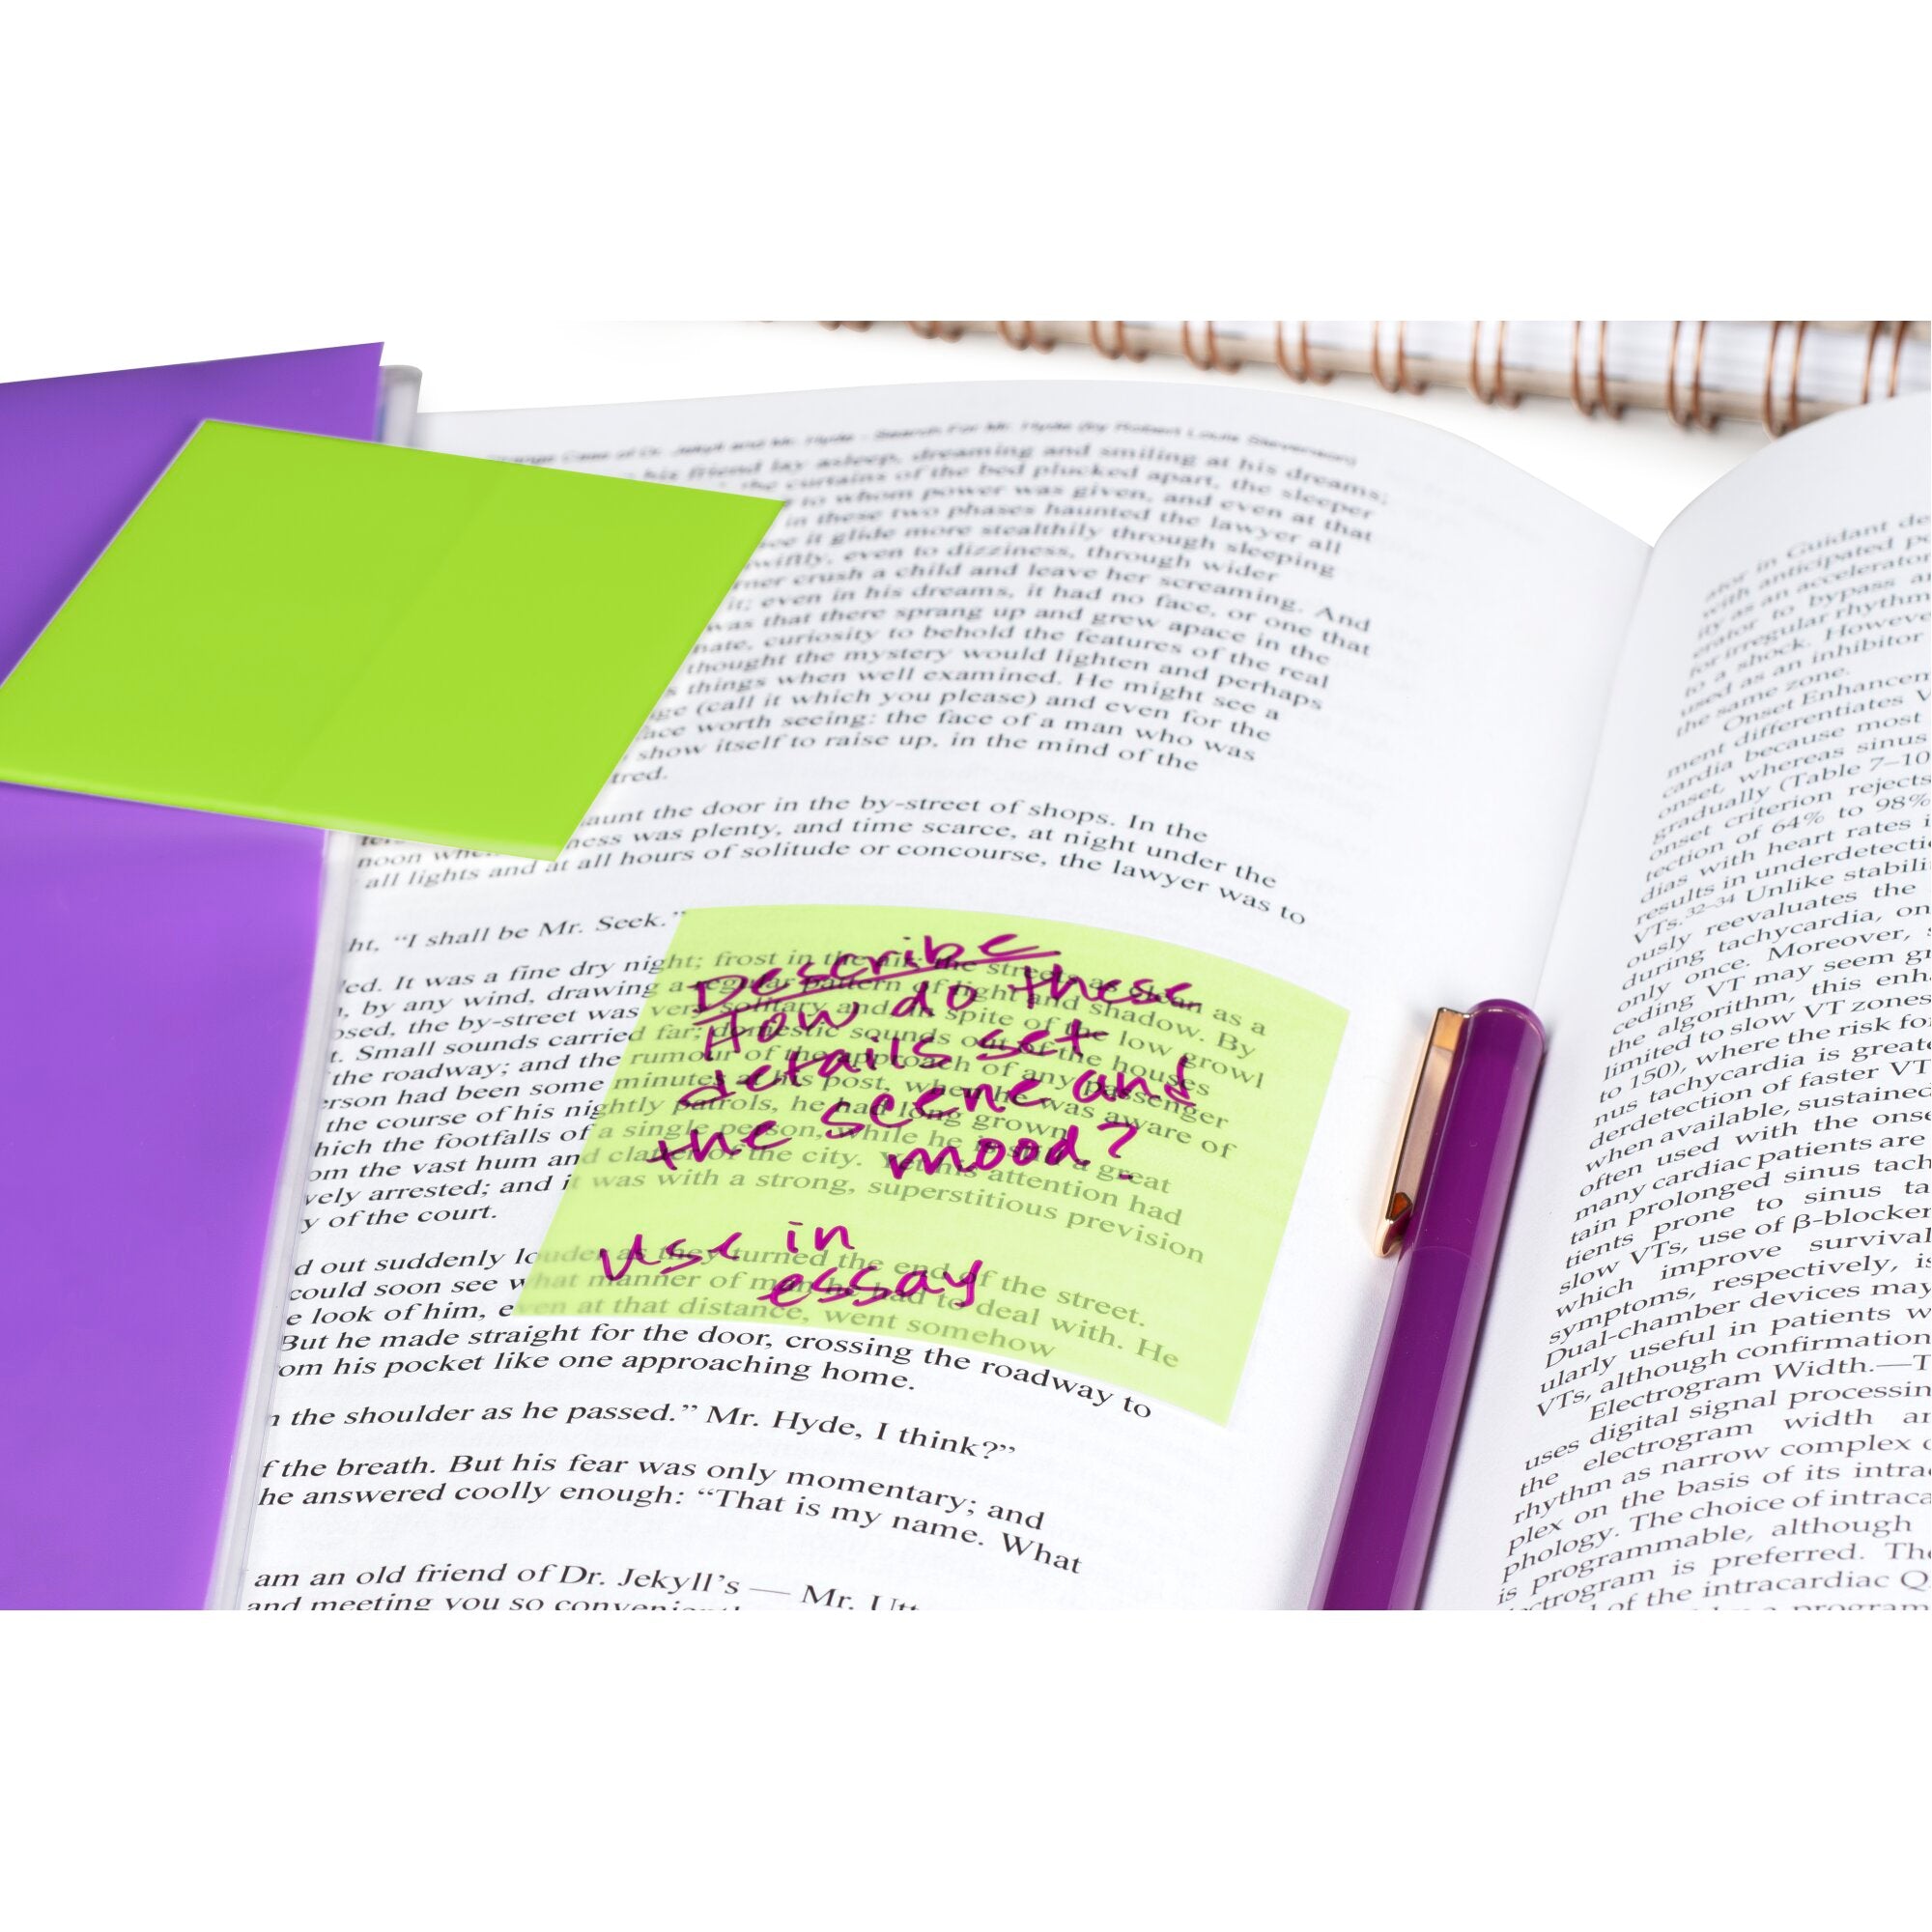 Strange Case of Dr. Jekyll and Mr. Hyde - Search For Mr. Hyde (by Robert Louis Stevenson)
his friend lay asleep, dreaming and smiling at his dreams;
the curtains of the bed plucked apart, the sleeper
to whom power was given, and even at that
in these two phases haunted the lawyer all
it glide more stealthily through sleeping
swiftly, even to dizziness, through wider
crush a child and leave her screaming. And
it; even in his dreams, it had no face, or one that
was that there sprang up and grew apace in the
curiosity to behold the features of the real
thought the mystery would lighten and perhaps
things when well examined. He might see a
(call it which you please) and even for the
worth seeing: the face of a man who was
show itself to raise up, in the mind of the
tred.
aunt the door in the by-street of shops. In the
noon when ness was plenty, and time scarce, at night under the
all lights and at all hours of solitude or concourse, the lawyer was to
ht, “I shall be Mr. Seek.”
led. It was a fine dry night; frost in the air; the streets as clean as a
, by any wind, drawing a regular pattern of light and shadow. By
osed, the by-street was very solitary and in spite of the low growl
t. Small sounds carried far; domestic sounds out of the houses
the roadway; and the rumour of the approach of any passenger
erson had been some minutes at his post, when he was aware of
the course of his nightly patrols, he had long grown
hich the footfalls of a single person, while he is still a great
om the vast hum and clatter of the city. Yet his attention had
vely arrested; and it was with a strong, superstitious prevision
y of the court.
d out suddenly louder as they turned the end of the street.
could soon see what manner of man he had to deal with. He
e look of him, even at that distance, went somehow
But he made straight for the door, crossing the roadway to
om his pocket like one approaching home.
n the shoulder as he passed.” Mr. Hyde, I think?”
f the breath. But his fear was only momentary; and
he answered coolly enough: “That is my name. What
am an old friend of Dr. Jekyll’s — Mr. Utt
and meeting you so convenient
Describe
How do these
details set
the scene and
mood?
use in
essay
in Guidant de
with anticipated
ity as an accelerator
to bypass
for irregular rhythm
to a shock. Howeve
used as an inhibitor
the same zone.
Onset Enhancem
ment differentiates V
cardia because most
onset, whereas sinus
gradually (Table 7–10
onset criterion rejects
tection of 64% to 98%
dias with heart rates i
results in underdetecti
VTs.32–34 Unlike stabili
ously reevaluates the
during tachycardia, on
only once. Moreover, s
ceding VT may seem gr
the algorithm, this enh
limited to slow VT zones
to 150), where the risk for
nus tachycardia is greate
derdetection of faster VT
when available, sustained
often used with the onse
many cardiac patients are
tain prolonged sinus tach
tients prone to sinus ta
slow VTs, use of β-blocker
which improve surviva
symptoms, respectively, is
Dual-chamber devices may
ularly useful in patients w
VTs, although confirmation
Electrogram Width.—T
uses digital signal processin
the electrogram width an
rhythm as narrow complex o
plex on the basis of its intra
phology. The choice of intraca
is programmable, although
ctrogram is preferred. The
of the intracardiac Q
program